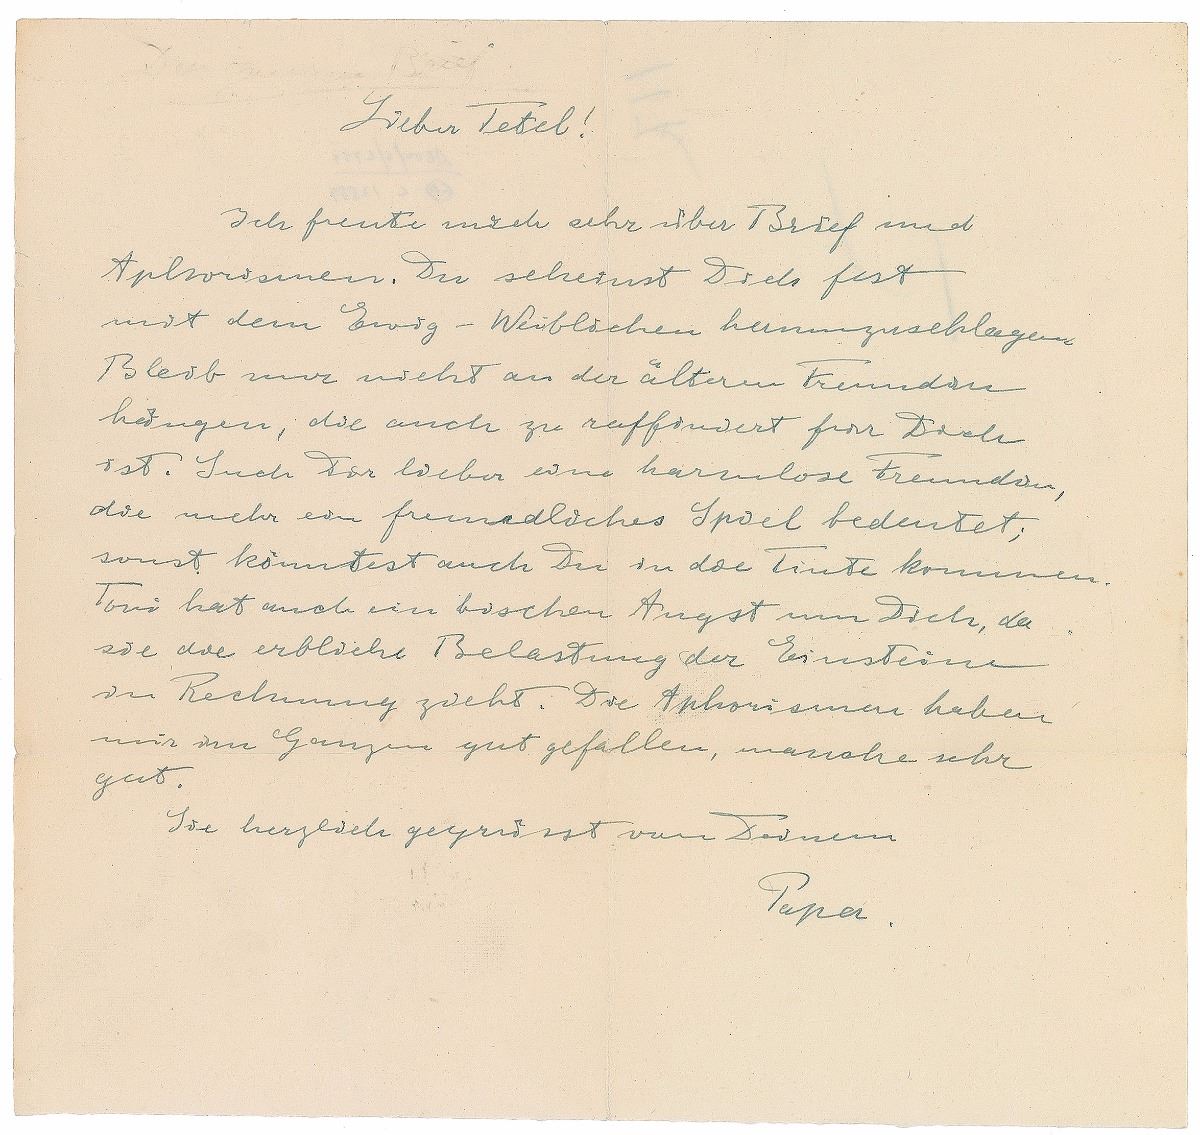 Lieber Tetel!
Ich freute mich sehr über Brief und
Aphorismen. Du scheinst Dich fest
mit dem Ewig-Weiblichen herumzuschlagen
Bleib nur nicht an der älteren Freundin
hängen, die auch zu raffiniert für Dich
ist. Such Dir lieber eine harmlose Freundin,
die mehr ein freundliches Spiel bedeutet;
sonst könntest auch Du in die Tinte kommen.
Toni hat auch ein bischen Angst um Dich, da
sie die erbliche Belastung der Einsteine
in Rechnung zieht. Die Aphorismen haben
mir im Ganzen gut gefallen, manche sehr
gut.
Sie herzlich gegrüsst von Deinem
Papa.